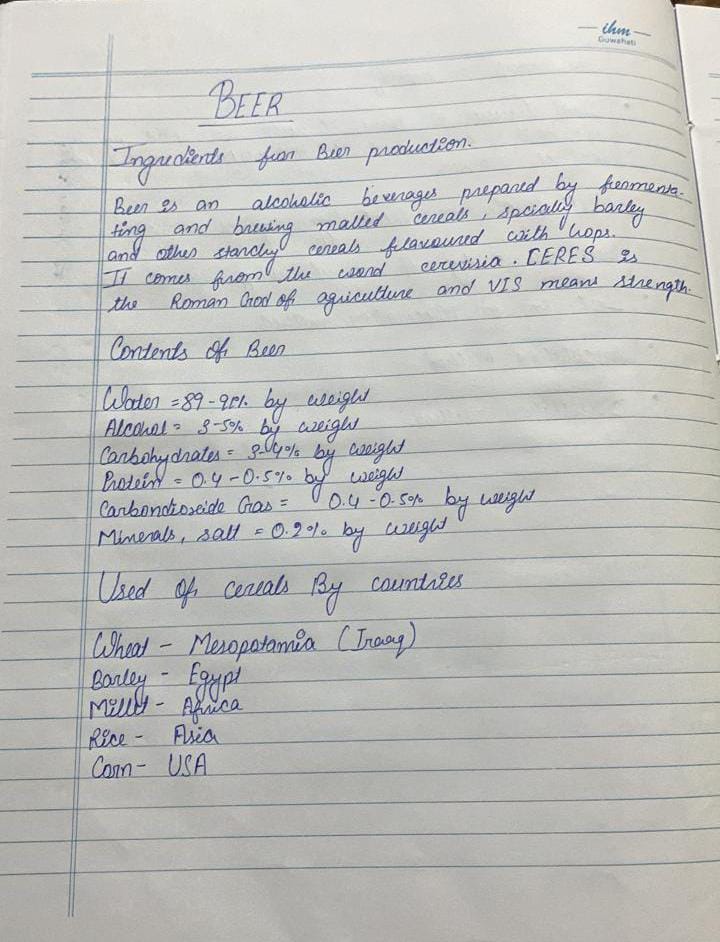 ihm
Guwahati
BEER
Ingredients for Beer production.
Beer is an alcoholic beverages prepared by fermenta-
ting and brewing malted cereals, spcially barley
and other starchy cereals flavoured with hops.
It comes from the word cerevisia. CERES is
the Roman God of agriculture and VIS means strength.
Contents Of Beer
Water = 89-91% by weight
Alcohol = 3-5% by weight
Carbohydrates = 3-4% by weight
Protein = 0.4-0.5% by weight
Carbondioxide Gas = 0.4-0.5% by weight
Minerals, salt = 0.2% by weight
Used Of cereals By countries
Wheat - Mesopotamia (Iraaq)
Barley - Egypt
Millet - Africa
Rice - Asia
Corn - USA